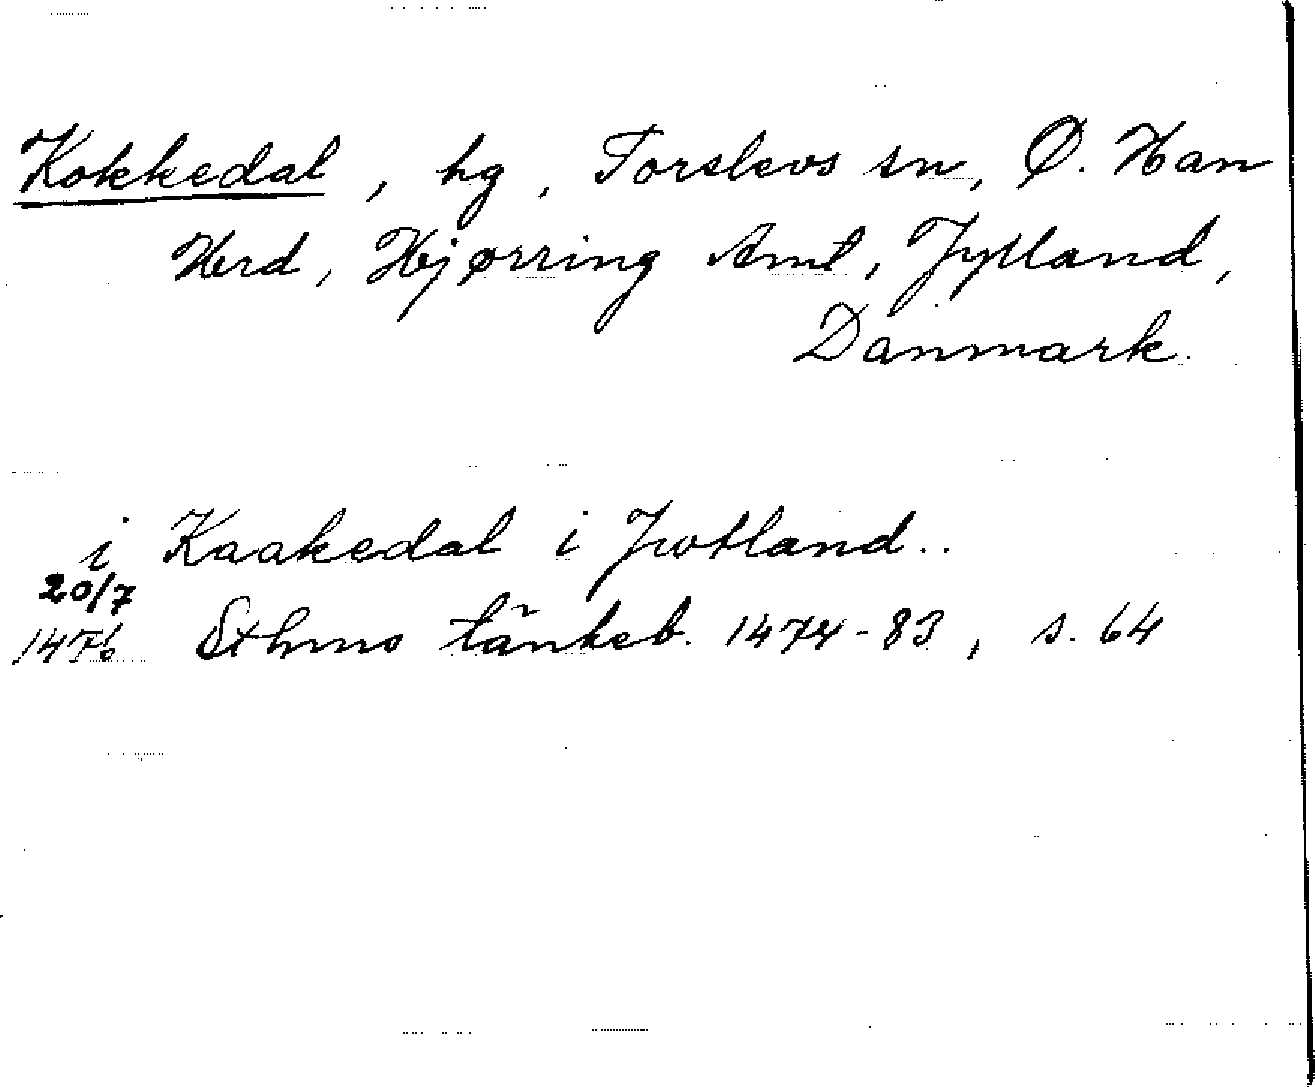 Kokkedal, hg, Torslevs sn, Ø. Han
Herd, Hjørring Amt, Jylland,
Danmark.
i Kaakedal i Jwtland..
20/7
1476 Sthms tänkeb. 1474-83, s. 64